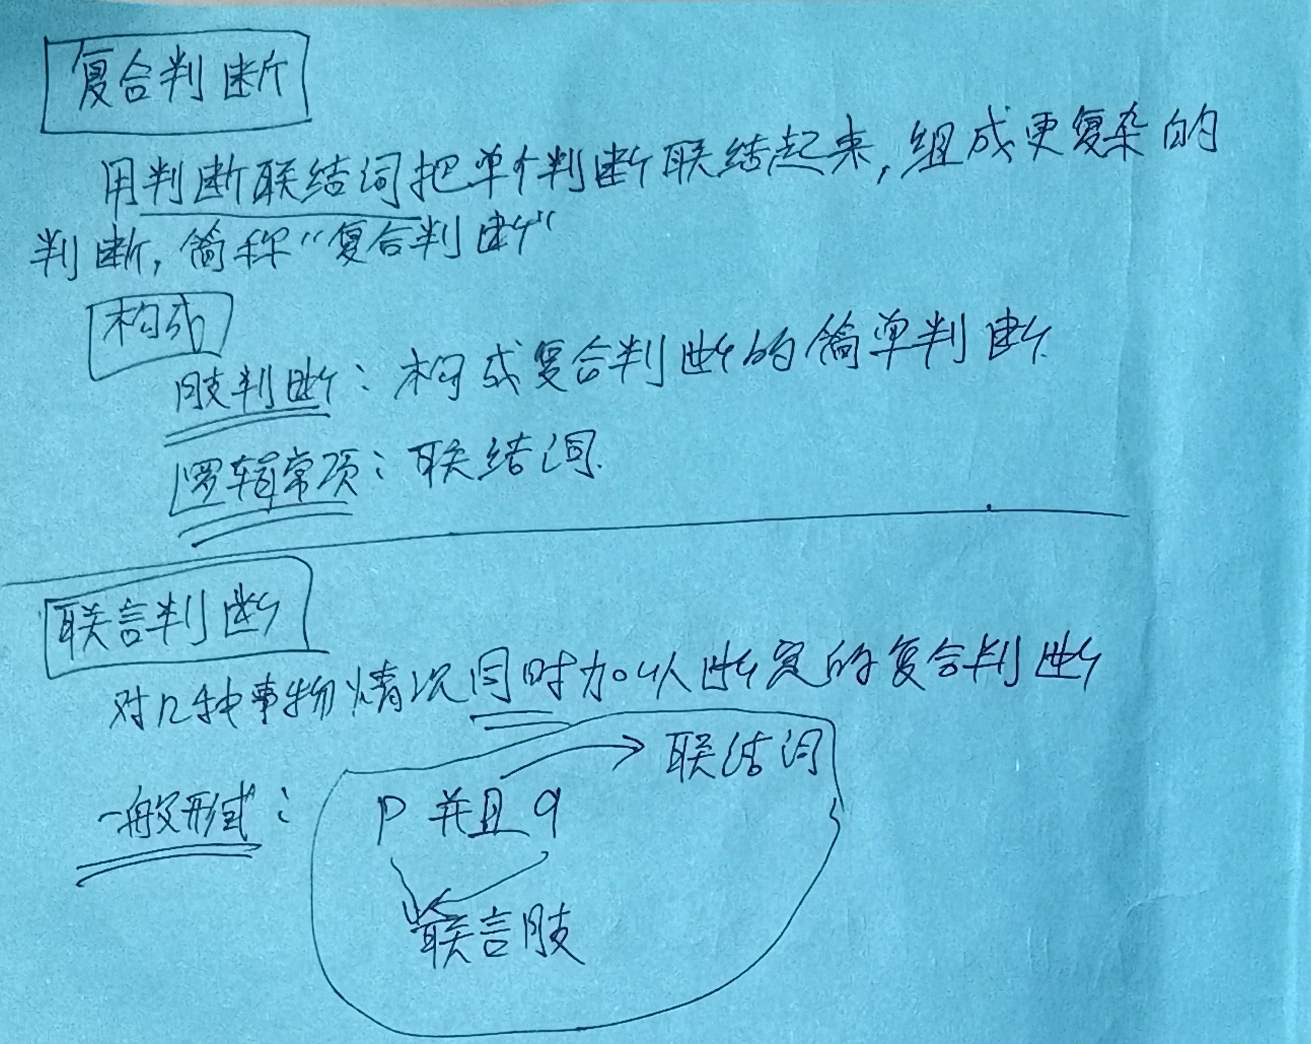 复合判断
用判断联结词把单个判断联结起来,组成更复杂的
判断,简称“复合判断“
构成
肢判断:构成复合判断的简单判断.
逻辑常项:联结词.
联言判断
对几种事物情况同时加以断定的复合判断
联结词
一般形式:p 并且 q
联言肢